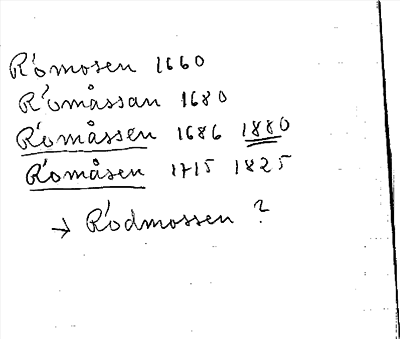 Rómosen 1660
Rómåssan 1680
Rómåssen 1686 1880
Rómåsen 1715 1825
→ Ródmossen ?